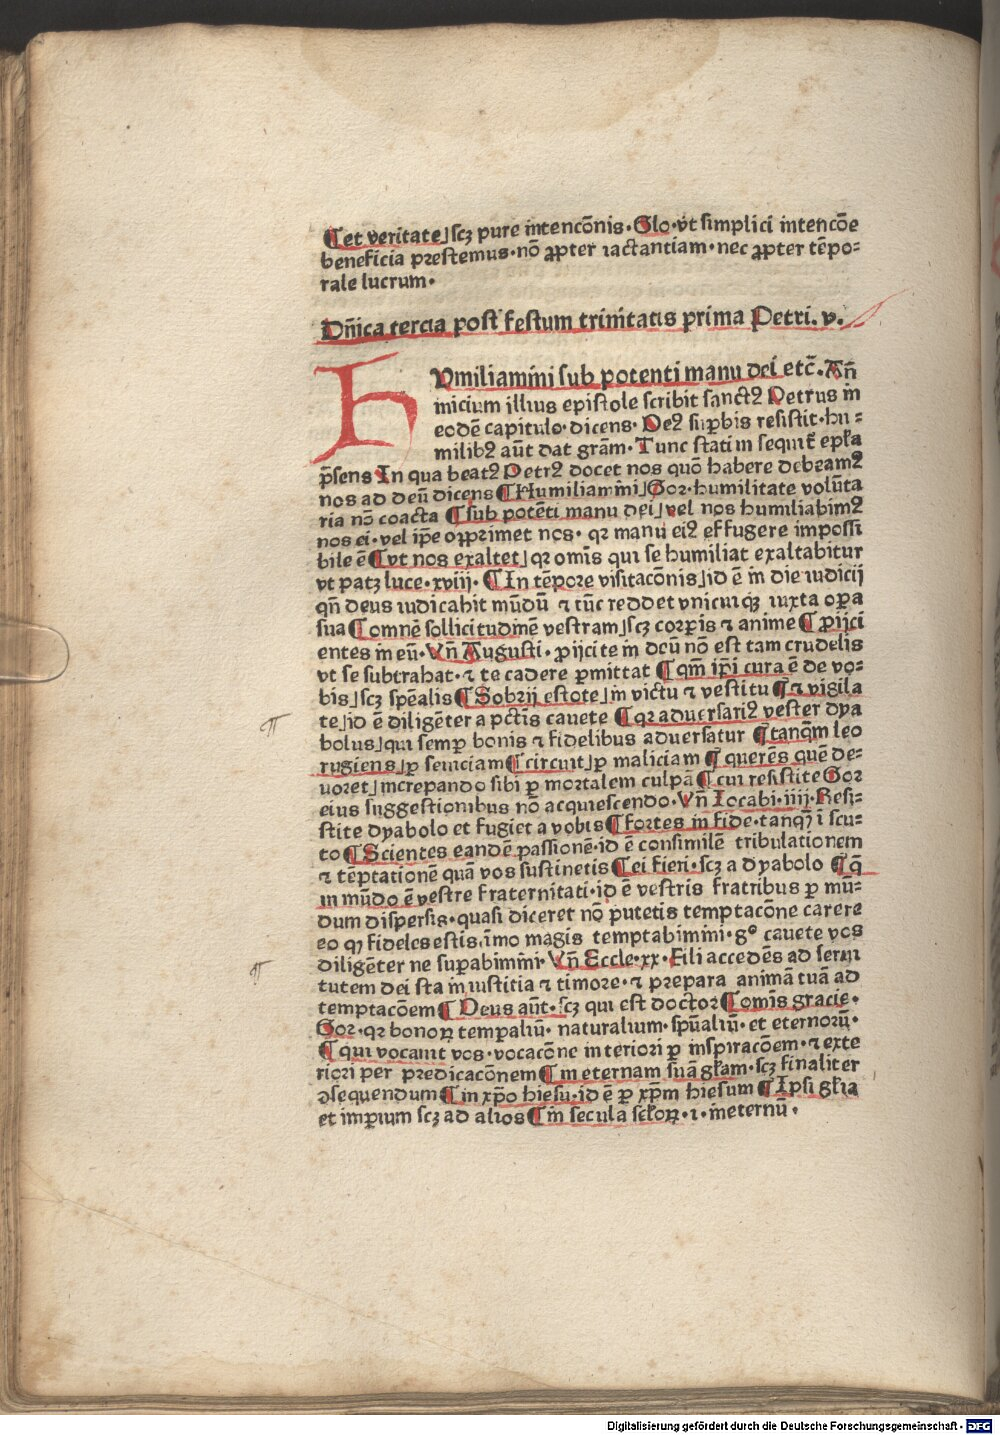 ¶et veritate⌋scꝫ pure intencōnis·Glo·vt simplici intencōe
beneficia prestemus·nō ꝓpter iactantiam·nec ꝓpter tēpo⸗
rale lucrum·
Dn̄ica tercia post festum trinitatis prima Petri.v.
HVmiliamini sub potenti manu dei etc̄·An̄
inicium illius epistole scribit sanctꝰ Petrus in
eodē capitulo·dicens·Deꝰ suꝑbis resistit·hu⸗
milibꝰ aūt dat grām·Tunc stati in sequit᷑ epl̄a
p̄sens In qua beatꝰ Petrꝰ docet nos quō habere debeamꝰ
nos ad deū dicens ¶Humiliamini⌋Gor·humilitate volūta
ria nō coacta ¶sub potēti manu dei⌋vel nos humiliabimꝰ
nos ei·vel ip̄e opprimet nos·qꝛ manu eiꝰ effugere impossi
bile ē ¶vt nos exaltet⌋qꝛ omīs qui se humiliat exaltabitur
vt patꝫ luce·xviij·¶In tēpore visitacōnis⌋id ē in die iudicij
qn̄ deus iudicabit mūdū ⁊ tūc reddet vnicuiqꝫ iuxta oꝑa
sua ¶omnē sollicitudinē vestram⌋scꝫ corꝑis ⁊ anime ¶ꝓijci
entes in eū·Vn̄ Augusti·ꝓijcite in deū nō est tam crudelis
vt se subtrahat·⁊ te cadere ꝑmittat ¶qm̄ ip̄i cura ē de vo⸗
bis⌋scꝫ spēalis ¶Sobrij estote⌋in victu ⁊ vestitu ¶⁊ vigila
te⌋id ē diligēter a pctīs cauete ¶qꝛ aduersariꝰ vester dya
bolus⌋qui semꝑ bonis ⁊ fidelibus aduersatur ¶tanqm̄ leo
rugiens⌋ꝑ seuiciam ¶circuit⌋ꝑ maliciam ¶querēs quē de⸗
uoret⌋increpando sibi ꝑ mortalem culpā ¶cui resistite Gor
eius suggestionibus nō acquiescendo·Vn̄ Iocabi·iiij·Resi⸗
stite dyabolo et fugiet a vobis ¶fortes in fide·tanqꝫ ī scu⸗
to ¶Scientes eandē passionē·id ē consimilē tribulationem
⁊ tēptationē quā vos sustinetis ¶ei fieri·scꝫ a dyabolo ¶q̄
in mūdo ē vestre fraternitati·id ē vestris fratribus ꝑ mū⸗
dum dispersis·quasi diceret nō putetis temptacōne carere
eo qꝫ fideles estis·īmo magis temptabimini·gº cauete vos
diligēter ne suꝑabimini·Vn̄ Eccle·xx·Fili accedēs ad serui
tutem dei sta in iustitia ⁊ timore·⁊ prepara animā tuā ad
temptacōem ¶Deus aūt·scꝫ qui est doctor ¶omīs gracie·
Gor·qꝛ bonoꝝ tempaliū·naturalium·spūaliū·et eternorū·
¶qui vocauit vos·vocacōne interiori ꝑ inspiracōem·⁊ exte
riori per predicacōnem ¶in eternam suā gl̄am·scꝫ finaliter
ↄsequendum ¶in xp̄o hiesu·id ē ꝑ xp̄m hiesum ¶Ipsi gl̄ia
et imꝑium scꝫ ad alios ¶in secula scl̄oꝝ·i·ineternū·
Digitalisierung gefördert durch die Deutsche Forschungsgemeinschaft - DFG